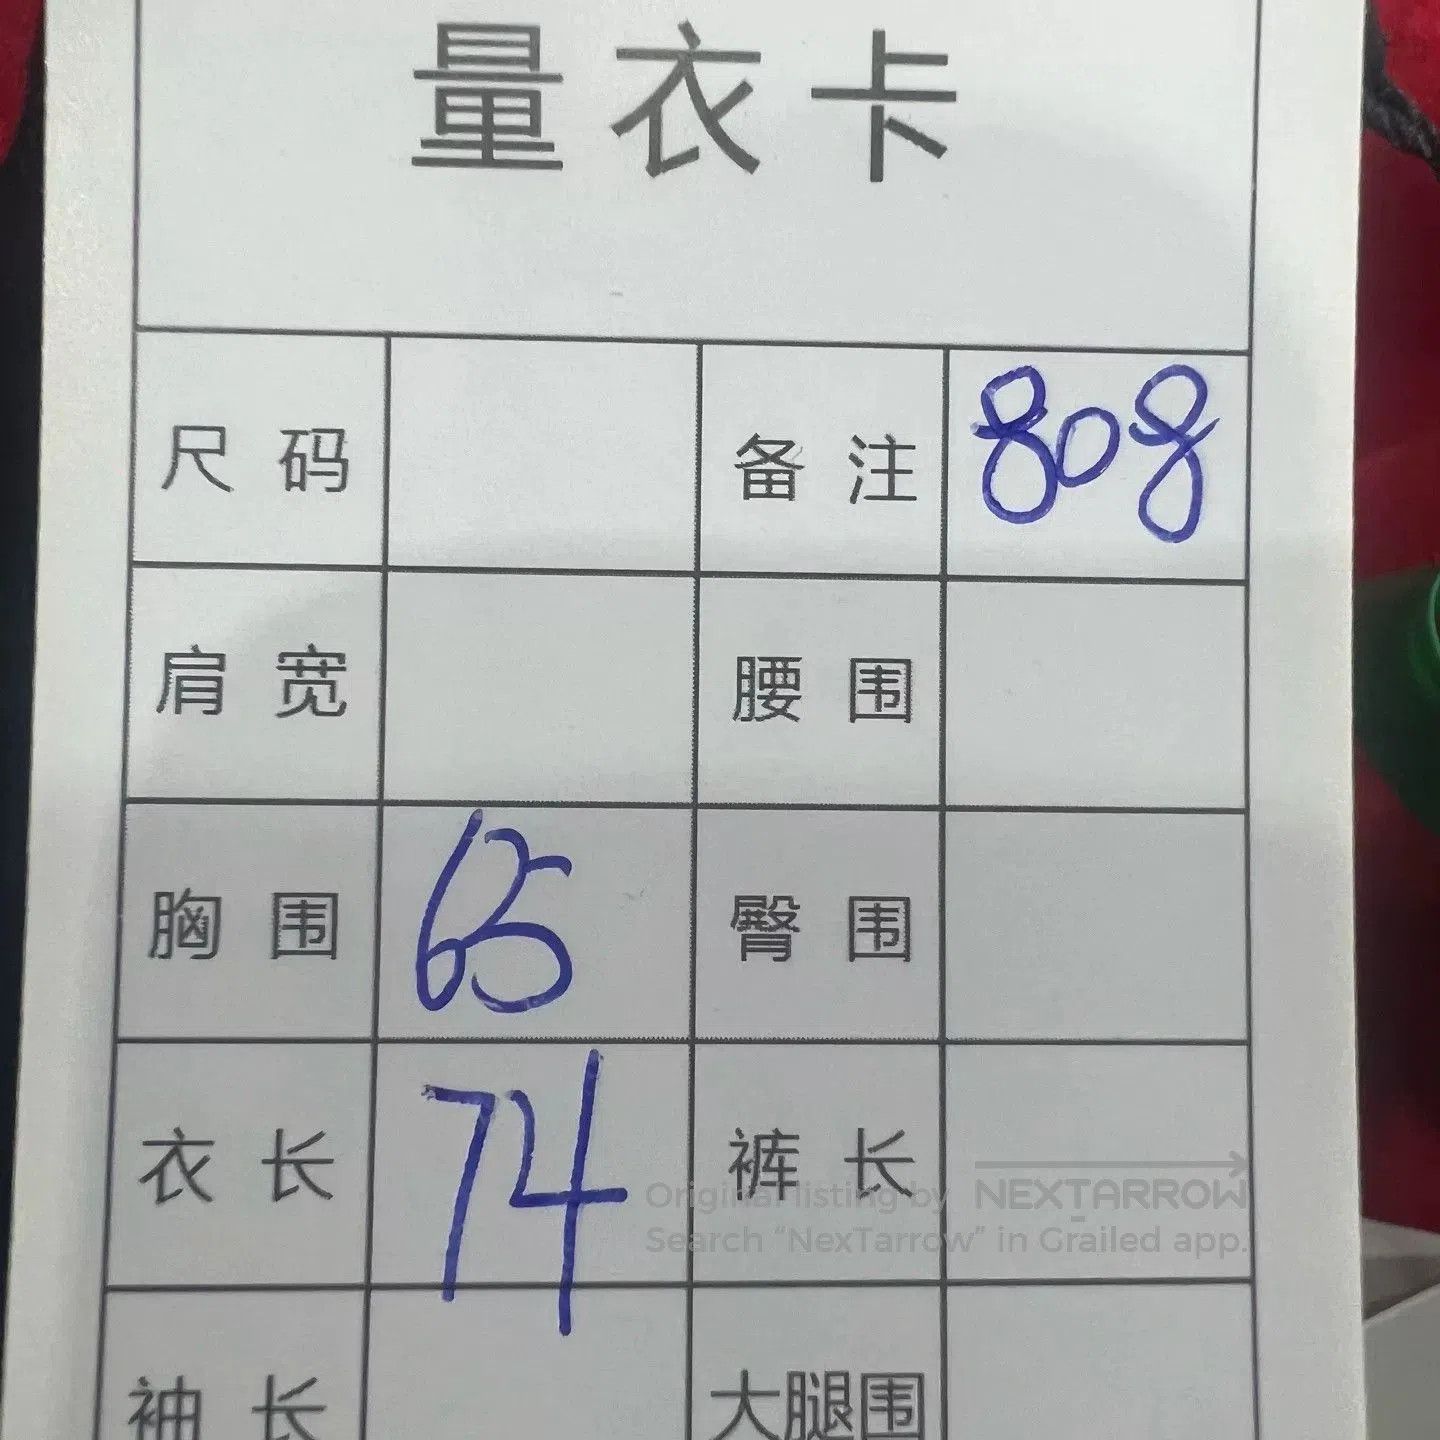 量衣卡
尺码 备注 808
肩宽 腰围
胸围 65 臀围
衣长 74 裤长
Original listing by NEXTARROW
Search “NexTarrow” in Grailed app.
袖长 大腿围